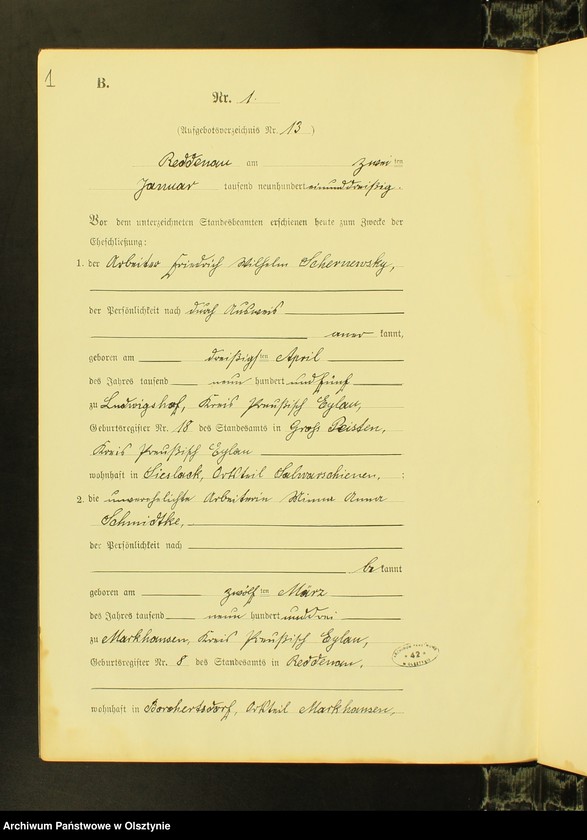 1
B.
Nr. 1.
(Aufgebotsverzeichnis Nr. 13)
Reddenau am zwei ten
Januar tausend neunhundert einunddreißig.
Vor dem unterzeichneten Standesbeamten erschienen heute zum Zwecke der
Eheschließung:
1. der Arbeiter Friedrich Wilhelm Schernewsky,
der Persönlichkeit nach durch Ausweis
aner kannt,
geboren am dreißigsten April
des Jahres tausend neun hundert und fünf
zu Ludwigshof, Kreis Preußisch Eylau,
Geburtsregister Nr. 18 des Standesamts in Groß Peisten,
Kreis Preußisch Eylau
wohnhaft in Sieslack, Ortsteil Salwarschienen, ;
2. die unverehelichte Arbeiterin Minna Anna
Schmidtke,
der Persönlichkeit nach
be kannt
geboren am zwölf ten März
des Jahres tausend neun hundert und drei
zu Markhausen, Kreis Preußisch Eylau,
Geburtsregister Nr. 8 des Standesamts in Reddenau,
42
wohnhaft in Borchertsdorf, Ortsteil Markhausen,
Archiwum Państwowe w Olsztynie